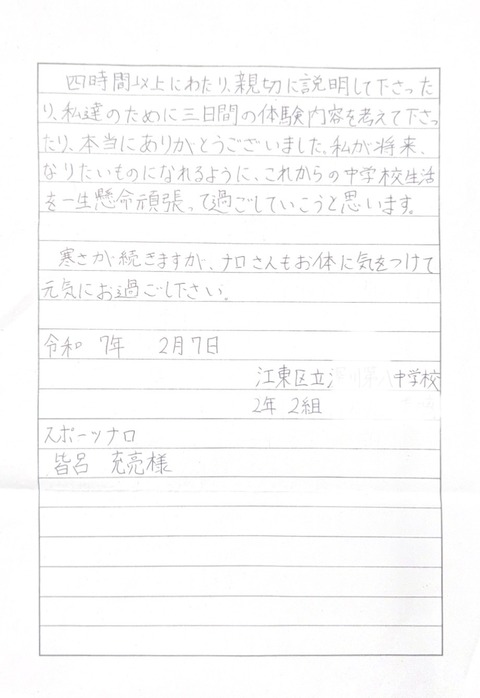 四時間以上にわたり、親切に説明して下さった
り、私達のために三日間の体験内容を考えて下さっ
たり、本当にありがとうございました。私が将来、
なりたいものになれるように、これからの中学校生活
を一生懸命頑張って過ごしていこうと思います。
寒さが続きますが、ナロさんもお体に気をつけて
元気にお過ごし下さい。
令和 7年 2月7日
江東区立 中学校
2年 2組
スポーツナロ
皆呂 充亮様